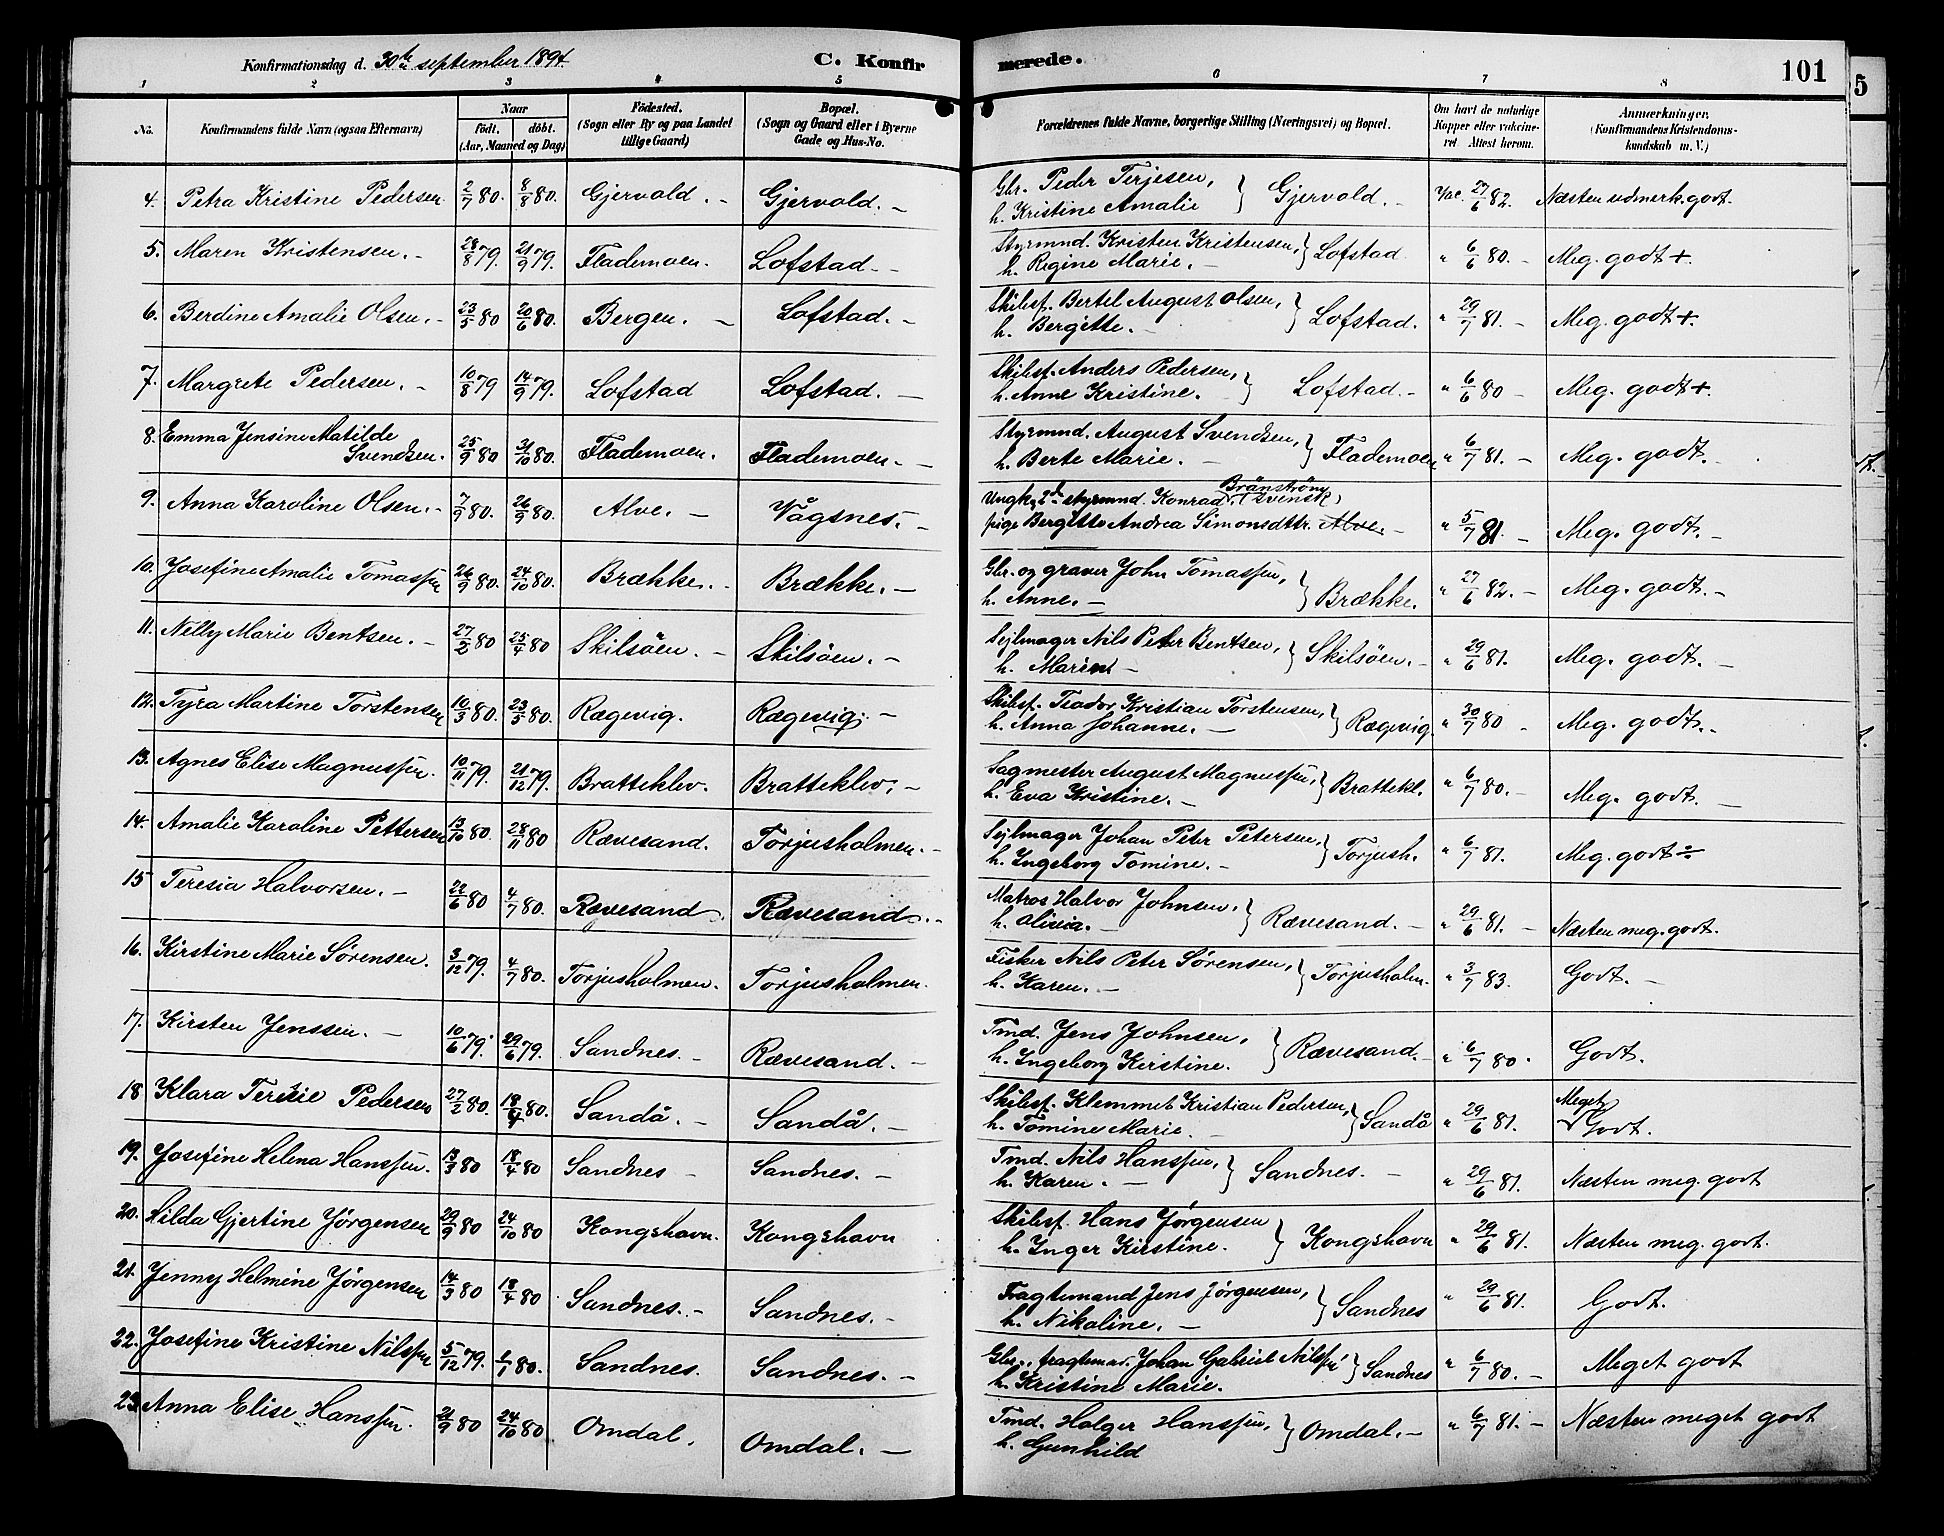 Konfirmationsdag d. 30te september 1894.
C. Konfir
merede.
101
5
1 2 3 4 5 6 7 8
No.
Konfirmandens fulde Navn (ogsaa Efternavn)
Naar
födt. döbt.
(Aar, Maaned og Dag)
Födested.
(Sogn eller By og paa Landet
tillige Gaard)
Bopæl.
(Sogn og Gaard eller i Byerne
Gade og Hus-No.
Forældrenes fulde Navne, borgerlige Stilling (Næringsvei) og Bopæl.
Om havt de naturlige
Kopper eller vakcine-
ret Attest herom.
Anmærkninger.
(Konfirmandens Kristendoms-
kundskab m. V.)
4. Petra Kristine Pedersen. 2/7 80. 8/8 80. Gjervold. - Gjervold. - Gbr. Peder Terjesen, h. Kristine Amalie } Gjervold. - Vac. 27/6 82. Næsten udmerk. godt.
5. Maren Kristensen. - 28/8 79. 21/9 79. Flademoen. Lofstad. - Styrmnd. Kristen Kristensen, h. Regine Marie. - } Lofstad " 6/6 80. - Meg. godt +.
6. Berdine Amalie Olsen. - 23/5 80 20/6 80. Bergen. - Lofstad. - Skibsf. Bertel August Olsen, h. Bergitte. - } Lofstad. " 29/7 81. - Meg. godt +.
7. Margrete Pedersen. - 10/8 79 14/9 79. Lofstad Lofstad. - Skibsf. Anders Pedersen, h. Anne Kristine. } Lofstad. - " 6/6 80 - Meg. godt +.
8. Emma Jensine Matilde Svendsen. 25/9 80 31/10 80. Flademoen. Flademoen. - Styrmnd. August Svendsen, h. Berte Marie. - } Flademoen " 6/7 81. - Meg. godt. -
9. Anna Karoline Olsen. - 7/9 80. 26/9 80. Alve. - Vågsnes. - Ungk. 2d styrmnd. Konrad Bränström (svensk) pige Bergitte Andrea Simonsdttr. Alve. - " 5/7 81. - Meg. godt. -
10. Josefine Amalie Tomassen 26/9 80. 24/10 80. Brække. - Brække. - Gbr. og graver John Tomassen, h. Anne. - } Brække. " 27/6 82. - Meg. godt. -
11. Nelly Marie Bentsen. - 27/2 80 25/4 80 Skilsöen. - Skilsöen. - Sejlmager Nils Peter Bentsen, h. Maren - } Skilsöen. - " 29/6 81. Meg. godt. -
12. Tyra Martine Torstensen 10/3 80. 23/5 80. Rægevig. Rægevig. - Skibsf. Teodor Kristian Torstensen, h. Anna Johanne. - } Rægevig. " 30/7 80 - Meg. godt. -
13. Agnes Elise Magnussen. 10/11 79. 21/12 79. Bratteklev. Bratteklev. - Sagmester August Magnussen, h. Eva Kristine. - } Brattekl. " 6/7 80. - Meg. godt. -
14. Amalie Karoline Pettersen 13/10 80. 28/11 80 Rævesand. Torjusholmen. - Sejlmager Johan Peter Petersen, h. Ingeborg Tomine. - } Torjush. " 6/7 81. Meg. godt ÷
15 Teresia Halvorsen. - 22/6 80 4/7 80. Rævesand. Rævesand. - Matros Halvor Johnsen, h. Olivia. - } Rævesand. - " 29/6 81. - Næsten meg. godt.
16. Kirstine Marie Sørensen. 3/12 79. 4/7 80. Torjusholmen. Torjusholmen. Fisker Nils Peter Sørensen, h. Karen. - } Torjusholm. " 3/7 83. Godt. -
17. Kirsten Jenssen. - 10/6 79. 29/6 79. Sandnes. - Rævesand. - Tmd. Jens Johnsen, h. Ingeborg Kirstine. } Rævesand. - " 6/7 80. Godt.
18 Klara Terese Pedersen 27/2 80. 18/4 80. Sandå. - Sandå. - Skibsf. Klemmet Kristian Pedersen, h. Tomine Marie. - } Sandå " 29/6 81. Meget Godt.
19. Josefine Helena Hanssen. 13/3 80 18/4 80 Sandnes - Sandnes. - Tmd. Nils Hanssen, h. Karen. - } Sandnes. - " 29/6 81. Næsten meg. godt
20. Hilda Gjertine Jørgensen 29/9 80 24/10 80 Kongshavn. Kongshavn Skibsf. Hans Jørgensen h. Inger Kirstine. } Kongshavn " 29/6 81. Næsten meg. godt.
21. Jenny Helmine Jørgensen 14/3 80 18/4 80 Sandnes. - Sandnes. - Fragtemand Jens Jörgensen, h. Nikoline. - } Sandnes " 29/6 81. Godt.
22. Josefine Kristine Nilssen 5/12 79. 1/1 80. Sandnes. Sandnes. - Gbr., fragtemd. Johan Gabriel Nilssen h. Kristine Marie. } Sandnes " 6/7 80. - Meget godt
23. Anna Elise Hanssen. 21/9 80 24/10 80 Omdal. Omdal. - Tmd. Holger Hanssen, h. Gunhild } Omdal. - " 6/7 81. - Næsten meget godt